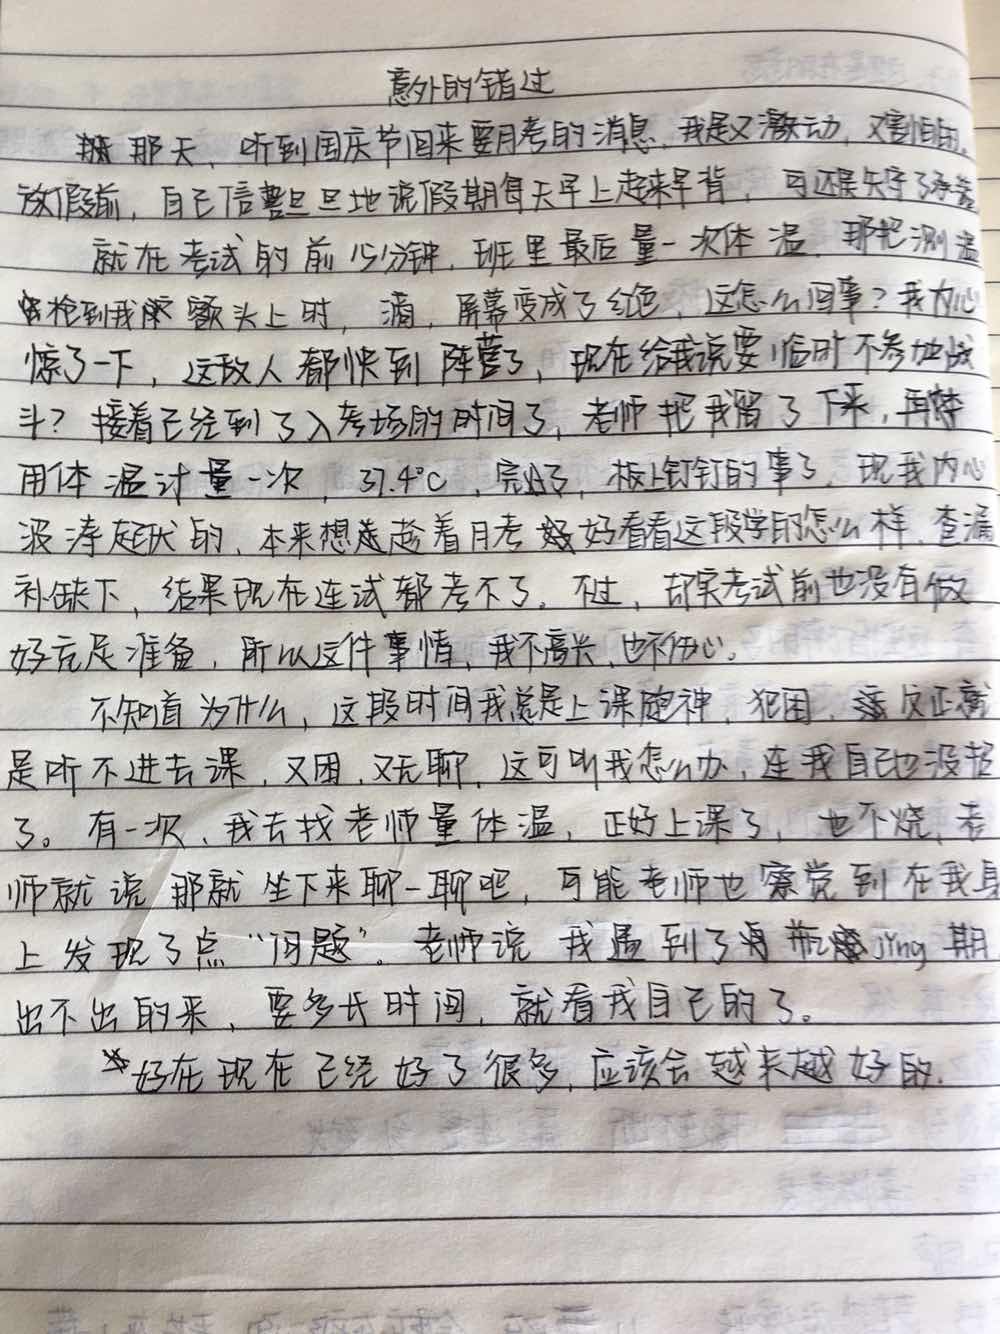 意外的错过
那天，听到国庆节回来要月考的消息，我是又激动，又害怕的。
放假前，自己信誓旦旦地说假期每天早上起来早背，可还是失守了承诺
就在考试的前15分钟，班里最后量一次体温，那把测温
枪到我额头上时，滴，屏幕变成了红色，这怎么回事？我内心
惊了一下，这敌人都快到阵营了，现在给我说要临时不参加战
斗？接着已经到了入考场的时间了，老师把我留了下来，再
用体温计量一次，37.4℃，完蛋了，板上钉钉的事了，现我内心
波涛起伏的，本来想趁着月考好好看看这段学的怎么样，查漏
补缺下，结果现在连试都考不了。不过，却实考试前也没有做
好充足准备，所以这件事情，我不高兴，也不伤心。
不知道为什么，这段时间我总是上课跑神，犯困，反正就
是听不进去课，又困，又无聊，这可叫我怎么办，连我自己也没招
了。有一次，我去找老师量体温，正好上课了，也不烧，老
师就说那就坐下来聊一聊吧，可能老师也察觉到在我身
上发现了点“问题”。老师说我遇到了瓶jing期
出不出的来，要多长时间，就看我自己的了。
好在现在已经好了很多，应该会越来越好的.